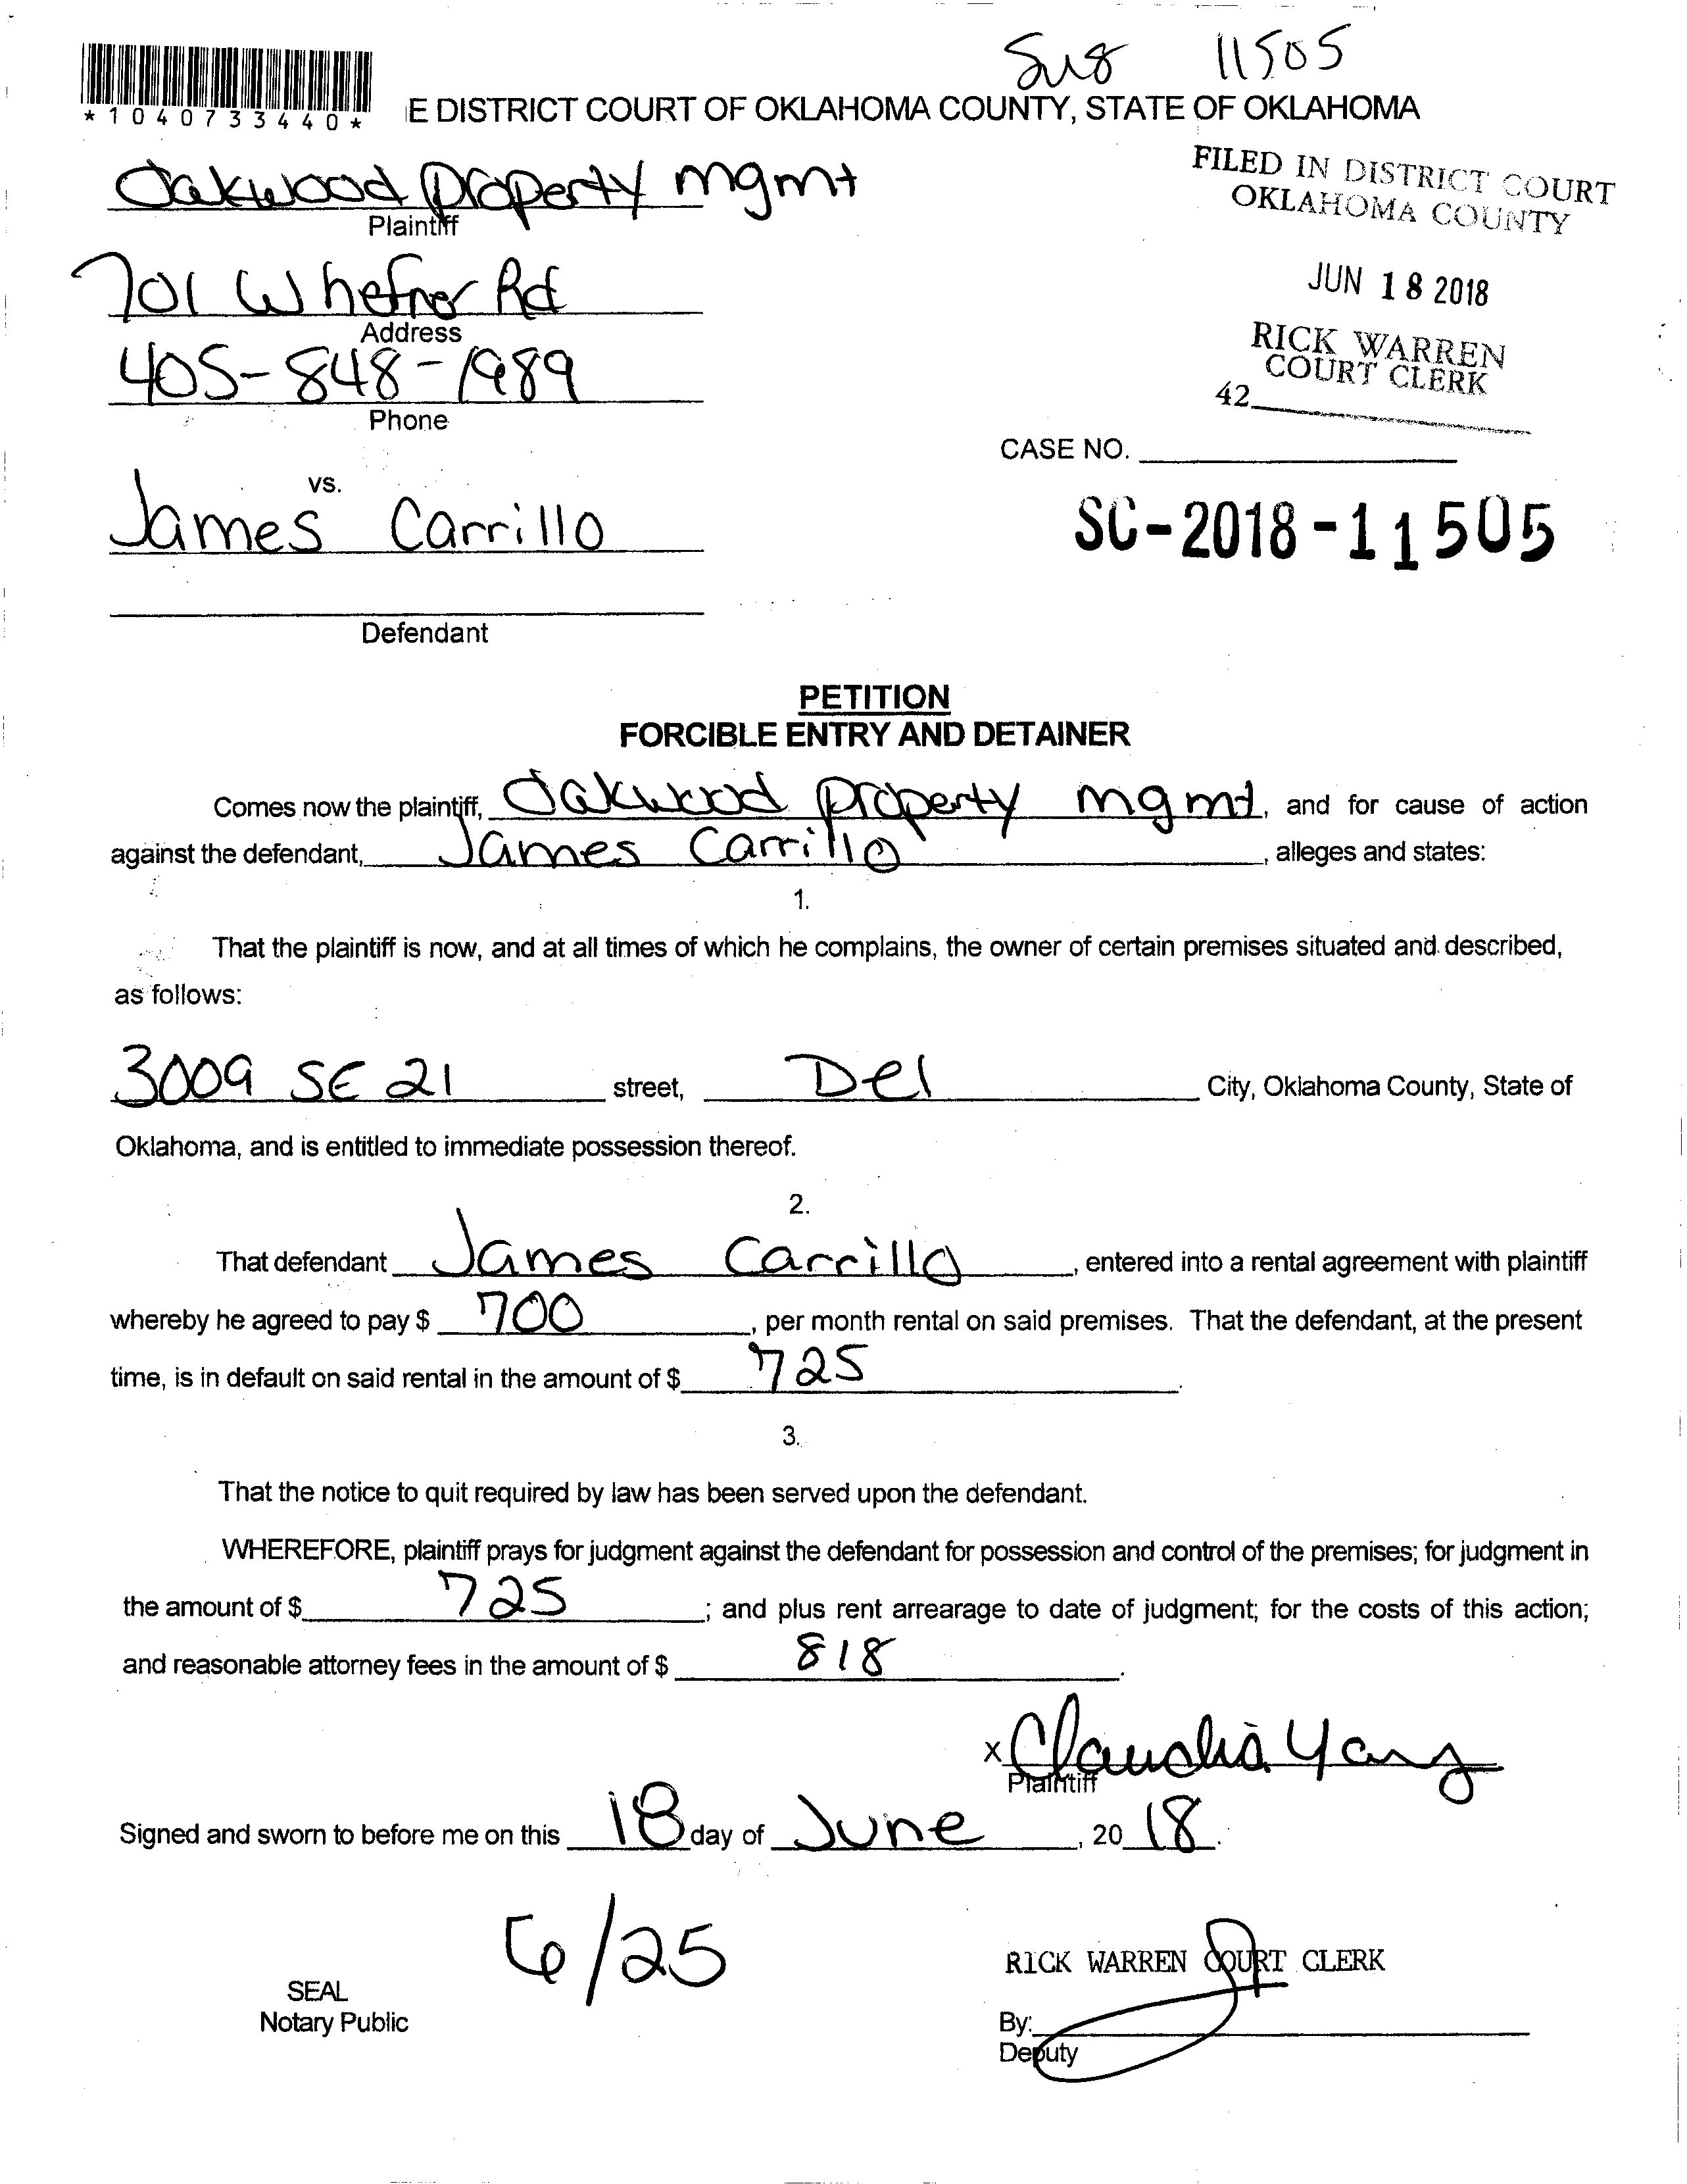 11505
*1040733440*
E DISTRICT COURT OF OKLAHOMA COUNTY, STATE OF OKLAHOMA
Oakwood Property mgmt
Plaintiff
FILED IN DISTRICT COURT
OKLAHOMA COUNTY
701 W hefner Rd
Address
JUN 18 2018
RICK WARREN
COURT CLERK
42
405-848-1989
Phone
CASE NO.
vs.
James Carrillo
SC-2018-11505
Defendant
PETITION
FORCIBLE ENTRY AND DETAINER
Comes now the plaintiff, Oakwood Property mgmt, and for cause of action
against the defendant, James Carrillo, alleges and states:
1.
That the plaintiff is now, and at all times of which he complains, the owner of certain premises situated and described,
as follows:
3009 SE 21 street, Del City, Oklahoma County, State of
Oklahoma, and is entitled to immediate possession thereof.
2.
That defendant James Carrillo, entered into a rental agreement with plaintiff
whereby he agreed to pay $ 700, per month rental on said premises. That the defendant, at the present
time, is in default on said rental in the amount of $ 725.
3.
That the notice to quit required by law has been served upon the defendant.
WHEREFORE, plaintiff prays for judgment against the defendant for possession and control of the premises; for judgment in
the amount of $ 725; and plus rent arrearage to date of judgment; for the costs of this action;
and reasonable attorney fees in the amount of $ 818.
x Claudia Yang
Plaintiff
Signed and sworn to before me on this 18 day of June, 2018.
6/25
RICK WARREN COURT CLERK
SEAL
Notary Public
By:
Deputy